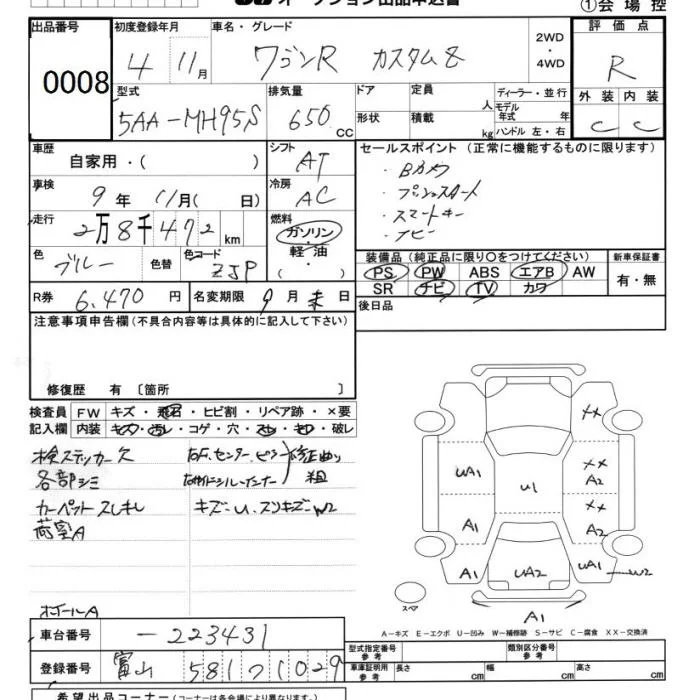 オークション出品申込書
①会場控
出品番号 0008
初度登録年月 4 11月
車名・グレード ワゴンR カスタムZ
2WD・4WD
評価点 R
型式 5AA-MH95S
排気量 650 CC
ドア 形状
定員 人
積載 kg
ディーラー・並行
モデル年式 年
ハンドル 左・右
外装 内装
C C
車歴 自家用・( )
シフト AT
セールスポイント(正常に機能するものに限ります)
・Bカメラ
・プッシュスタート
・スマートキー
・ナビ
車検 9年 11月( 日)
冷房 AC
走行 2万8千472km
燃料 ガソリン・軽油・( )
色 ブルー 色替 色コード ZJP
装備品(純正品に限り○をつけてください)
PS PW ABS エアB AW
SR ナビ TV カワ
新車保証書
有・無
R券 6,470円 名変期限 9月 末日
後日品
注意事項申告欄(不具合内容等は具体的に記入して下さい)
修復歴 有 〔箇所 〕
検査員記入欄
FW キズ・飛石・ヒビ割・リペア跡・×要
内装 キズ・汚レ・コゲ・穴・スレ・破レ
検ステッカー欠
各部シミ
カーペットスレキレ
荷室A
右F、センター、ピラー
右サイドシル
修正あり
粗
キズ・U、スリキズ・W2
ホイールA
XX
UA1 XX A2
U1
A1 XX A2
A1 UA2 UA1 W2
A1
スペア
A-キズ E-エクボ U-凹み W-補修跡 S-サビ C-腐食 XX-交換済
車台番号 -223431
登録番号 富山 581 1029
型式指定番号 参考
類別区分番号 参考
車庫証明用 参考 長さ cm 幅 cm 高さ cm
希望出品コーナー(コーナーは各会場により異なります。)